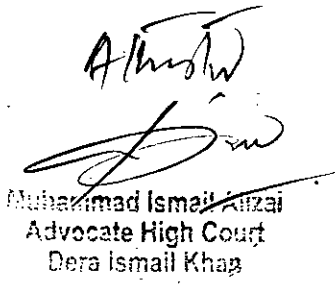 Attested
Muhammad Ismail Alizai
Advocate High Court
Dera Ismail Khan